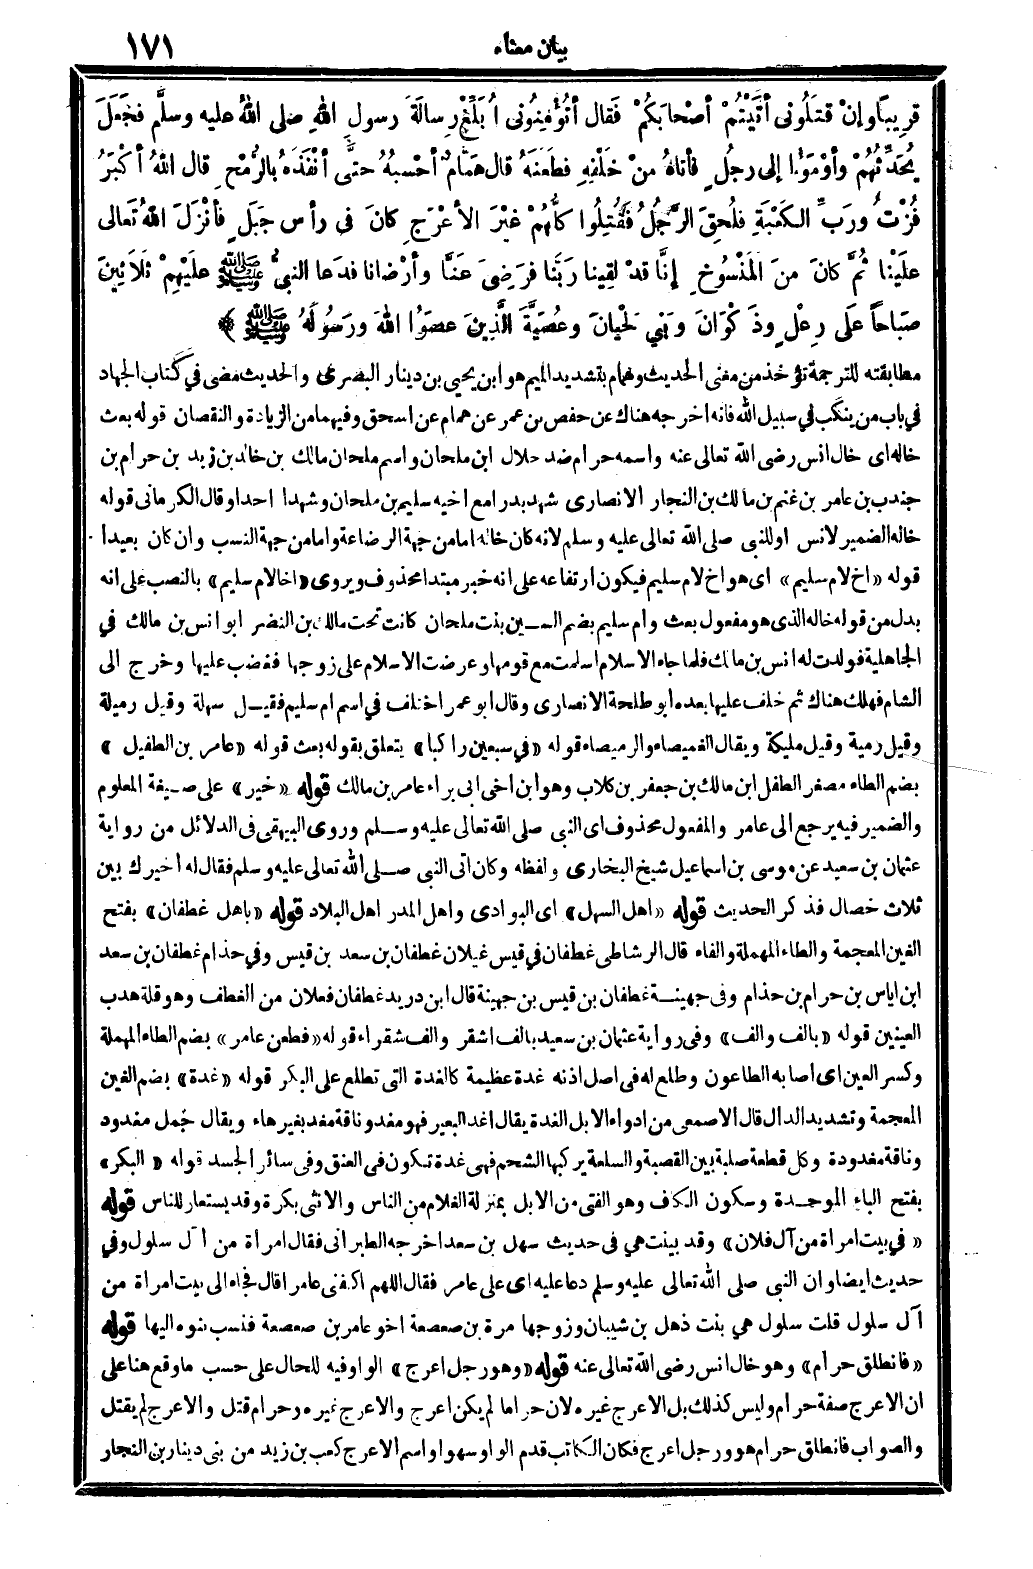 بيان معناه ١٧١
قَرِيباً وإنْ قتَلُونى أتَيْتُمْ أصْحابَكُمْ فَقال أتُؤْمِنُونى أُبَلِّغْ رِسالَةَ رسولِ اللهِ صلى اللهُ عليه وسلَّم فجَعَلَ
يُحَدِّثُهُمْ وأوْمَؤُا إلى رجُلٍ فأتاهُ مِنْ خَلْفِهِ فطَعَنَهُ قال همَّامٌ أحْسِبُهُ حتَّى أنْفَذَهُ بالرُّمْحِ قال اللهُ أكْبَرُ
فُزْتُ ورَبِّ الكَعْبَةِ فلُحِقَ الرَّجُلُ فَقُتِلُوا كلُّهُمْ غيْرَ الأعْرَجِ كانَ فى رأسِ جَبَلٍ فأنْزَلَ اللهُ تعالى
علَيْنا ثُمَّ كانَ منَ المَنْسُوخِ إنَّا قدْ لقِينا رَبَّنا فرَضِىَ عنَّا وأرْضانا فدَعا النبىُّ ﷺ علَيْهِمْ ثلاَثِينَ
صَباحاً علَى رِعْلٍ وذَكْوَانَ وبَنِي لَحْيانَ وعُصَيَّةَ الَّذِينَ عصَوُا اللهَ ورَسُولَهُ ﷺ ﴾
مطابقته للترجمة تؤخذ من معنى الحديث وهمام بتشديد الميم هو ابن يحيى بن دينار البصرى والحديث مضى في كتاب الجهاد
في باب من ينكب في سبيل الله فانه اخرجه هناك عن حفص بن عمر عن همام عن اسحق وفيهما من الزيادة والنقصان قوله بعث
خاله اى خال انس رضى الله تعالى عنه واسمه حرام ضد حلال ابن ملحان واسم ملحان مالك بن خالد بن زيد بن حرام بن
جندب بن عامر بن غنم بن مالك بن النجار الانصارى شهد بدرا مع اخيه سليم بن ملحان وشهدا احدا وقال الكرمانى قوله
خاله الضمير لانس اوللنبى صلى الله تعالى عليه وسلم لانه كان خاله اما من جهة الرضاعة واما من جهة النسب وان كان بعيدا
قوله «اخ لام سليم» اى هو اخ لام سليم فيكون ارتفاعه على انه خبر مبتدا محذوف ويروى «اخا لام سليم» بالنصب على انه
بدل من قوله خاله الذى هو مفعول بعث وام سليم بضم السين بنت ملحان كانت تحت مالك بن النضر ابو انس بن مالك في
الجاهلية فولدت له انس بن مالك فلما جاء الاسلام اسلمت مع قومها وعرضت الاسلام على زوجها فغضب عليها وخرج الى
الشام فهلك هناك ثم خلف عليها بعده ابو طلحة الانصارى وقال ابو عمر اختلف في اسم ام سليم فقيل سهلة وقيل رميلة
وقيل رمية وقيل مليكة ويقال الغميصاء والرميصاء قوله «في سبعين راكبا» يتعلق بقوله بعث قوله «عامر بن الطفيل»
بضم الطاء مصغر الطفل ابن مالك بن جعفر بن كلاب وهو ابن اخى ابى براء عامر بن مالك قوله «خير» على صيغة المعلوم
والضمير فيه يرجع الى عامر والمفعول محذوف اى النبى صلى الله تعالى عليه وسلم وروى البيهقى فى الدلائل من رواية
عثمان بن سعيد عن موسى بن اسماعيل شيخ البخارى ولفظه وكان اتى النبى صلى الله تعالى عليه وسلم فقال له أخيرك بين
ثلاث خصال فذكر الحديث قوله «اهل السهل» اى البوادى واهل المدر اهل البلاد قوله «باهل غطفان» بفتح
الغين المعجمة والطاء المهملة والفاء قال الرشاطى غطفان في قيس غيلان غطفان بن سعد بن قيس وفي حذام غطفان بن سعد
ابن اياس بن حرام بن حذام وفى جهينة غطفان بن قيس بن جهينة قال ابن دريد غطفان فعلان من الغطف وهو قلة هدب
العينين قوله «بالف والف» وفى رواية عثمان بن سعيد بالف اشقر والف شقراء قوله «فطعن عامر» بضم الطاء المهملة
وكسر العين اى اصابه الطاعون وطلع له فى اصل اذنه غدة عظيمة كالغدة التى تطلع على البكر قوله «غدة» بضم الغين
المعجمة وتشديد الدال قال الاصمعى من ادواء الابل الغدة يقال اغد البعير فهو مغد وناقة مغد بغير هاء ويقال جمل مغدود
وناقة مغدودة وكل قطعة صلبة بين القصبة والسلعة يركبها الشحم فهى غدة تكون فى العنق وفى سائر الجسد قوله «البكر»
بفتح الباء الموحدة وسكون الكاف وهو الفتى من الابل بمنزلة الغلام من الناس والانثى بكرة وقد يستعار للناس قوله
«في بيت امرأة من آل فلان» وقد بينت هي فى حديث سهل بن سعد اخرجه الطبرانى فقال امرأة من آل سلول وفي
حديث ايضا وان النبى صلى الله تعالى عليه وسلم دعا عليه اى على عامر فقال اللهم اكفنى عامرا قال فجاء الى بيت امرأة من
آل سلول قلت سلول هي بنت ذهل بن شيبان وزوجها مرة بن صعصعة اخو عامر بن صعصعة فنسب بنوه اليها قوله
«فانطلق حرام» وهو خال انس رضى الله تعالى عنه قوله «وهو رجل اعرج» الواو فيه للحال على حسب ما وقع هنا على
ان الاعرج صفة حرام وليس كذلك بل الاعرج غيره لان حراما لم يكن اعرج والاعرج غيره وحرام قتل والاعرج لم يقتل
والصواب فانطلق حرام هو ورجل اعرج فكان الكاتب قدم الواو سهوا واسم الاعرج كعب بن زيد من بنى دينار بن النجار